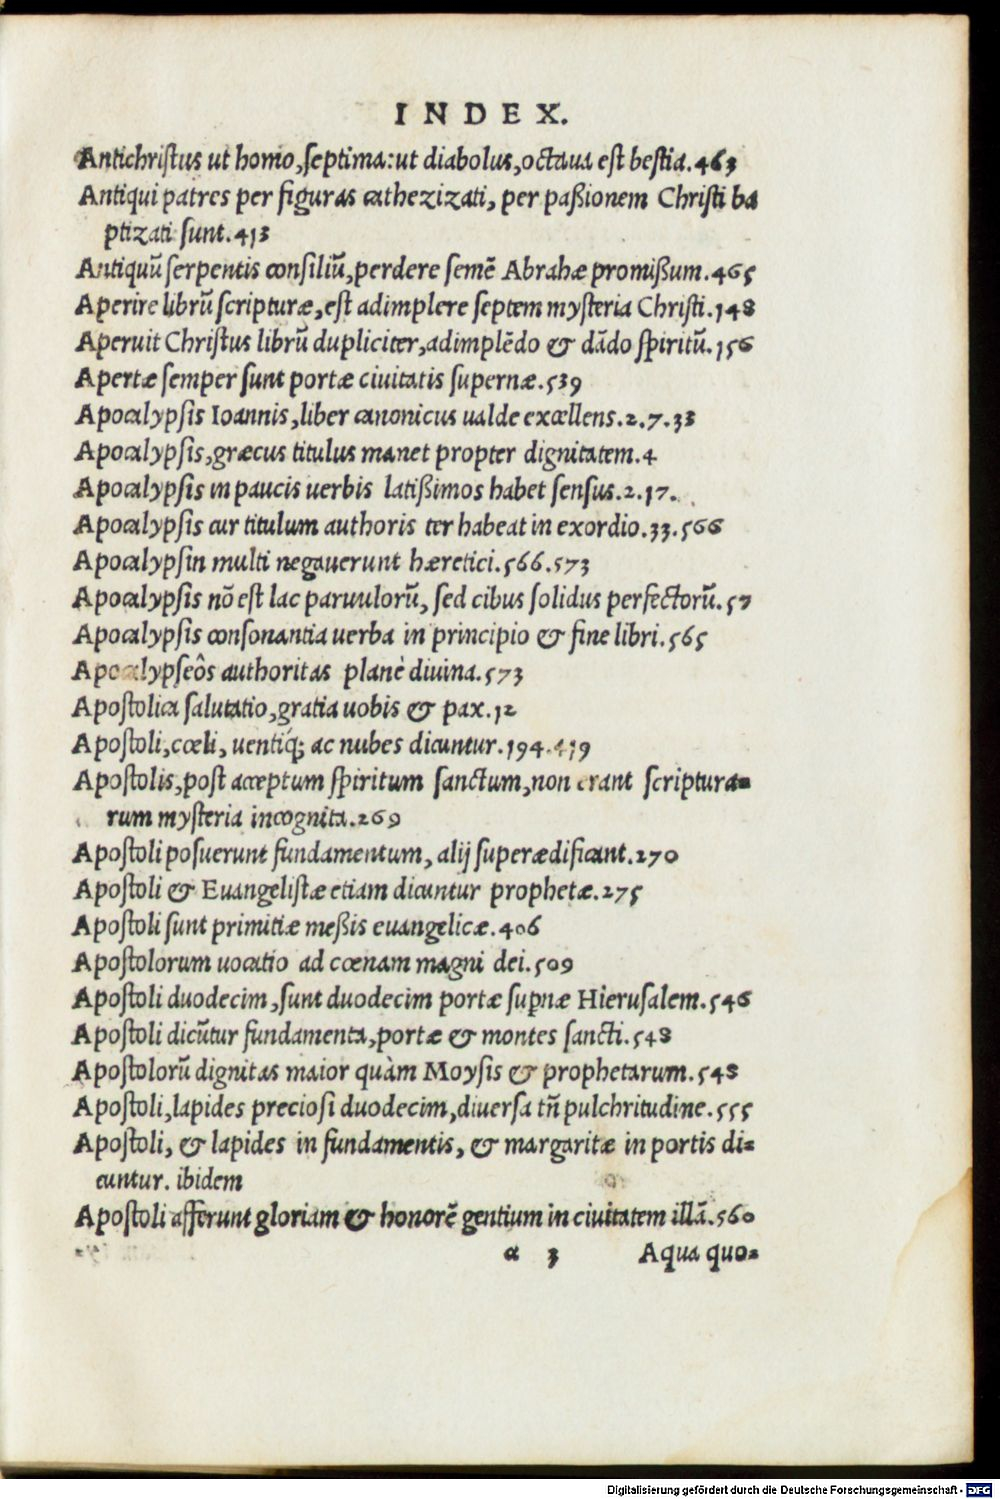 INDEX.
Antichristus ut homo, septima: ut diabolus, octaua est bestia. 463
Antiqui patres per figuras cathezizati, per paßionem Christi ba
ptizati sunt. 413
Antiquũ serpentis consiliũ, perdere semẽ Abrahæ promißum. 465
Aperire librũ scripturæ, est adimplere septem mysteria Christi. 148
Aperuit Christus librũ dupliciter, adimplẽdo & dãdo spiritũ. 156
Apertæ semper sunt portæ ciuitatis supernæ. 539
Apocalypsis Ioannis, liber canonicus ualde excellens. 2. 7. 33
Apocalypsis, græcus titulus manet propter dignitatem. 4
Apocalypsis in paucis uerbis latißimos habet sensus. 2. 17.
Apocalypsis cur titulum authoris ter habeat in exordio. 33. 566
Apocalypsin multi negauerunt hæretici. 566. 573
Apocalypsis nõ est lac paruulorũ, sed cibus solidus perfectorũ. 57
Apocalypsis consonantia uerba in principio & fine libri. 565
Apocalypseôs authoritas planè diuina. 573
Apostolica salutatio, gratia uobis & pax. 12
Apostoli, cœli, uentiq́; ac nubes dicuntur. 194. 419
Apostolis, post acceptum spiritum sanctum, non erant scriptura-
rum mysteria incognita. 269
Apostoli posuerunt fundamentum, alij superædificant. 270
Apostoli & Euangelistæ etiam dicuntur prophetæ. 275
Apostoli sunt primitiæ meßis euangelicæ. 406
Apostolorum uocatio ad cœnam magni dei. 509
Apostoli duodecim, sunt duodecim portæ supnæ Hierusalem. 546
Apostoli dicũtur fundamenta, portæ & montes sancti. 548
Apostolorũ dignitas maior quàm Moysis & prophetarum. 548
Apostoli, lapides preciosi duodecim, diuersa tñ pulchritudine. 555
Apostoli, & lapides in fundamentis, & margaritæ in portis di-
cuntur. ibidem
Apostoli afferunt gloriam & honorẽ gentium in ciuitatem illã. 560
a 3 Aqua quo-
Digitalisierung gefördert durch die Deutsche Forschungsgemeinschaft - DFG